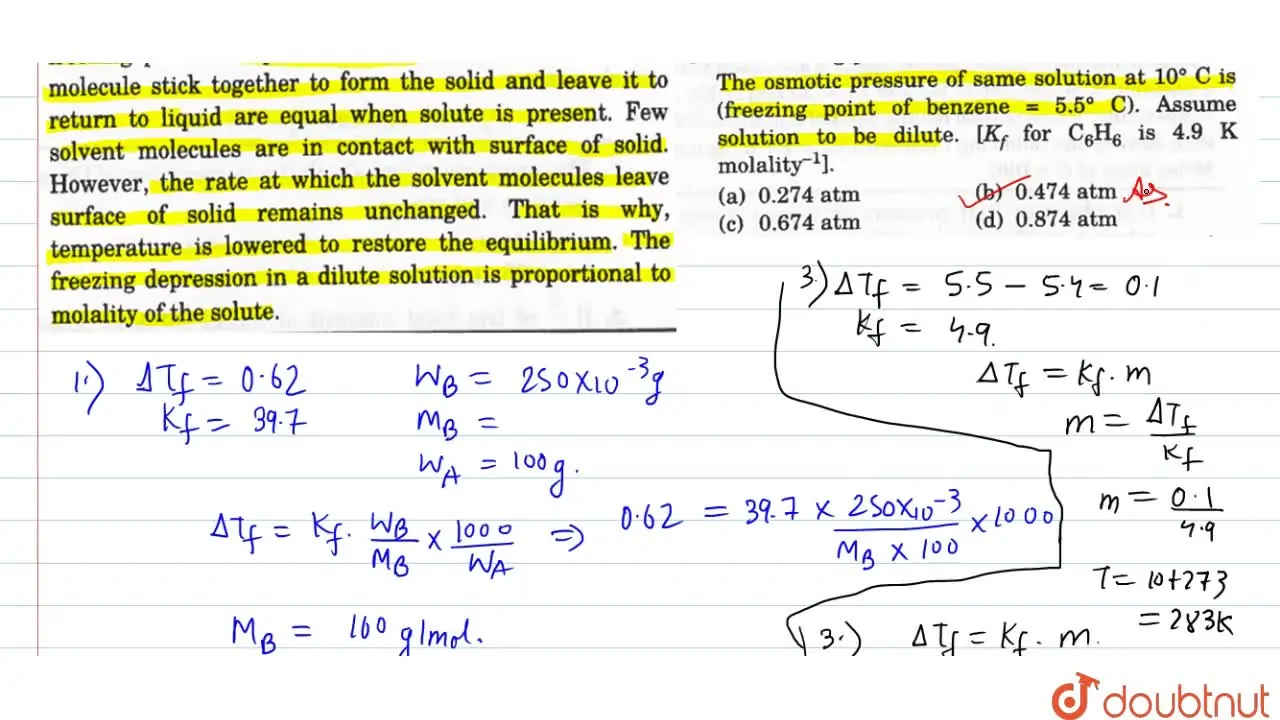 molecule stick together to form the solid and leave it to
return to liquid are equal when solute is present. Few
solvent molecules are in contact with surface of solid.
However, the rate at which the solvent molecules leave
surface of solid remains unchanged. That is why,
temperature is lowered to restore the equilibrium. The
freezing depression in a dilute solution is proportional to
molality of the solute.
The osmotic pressure of same solution at 10° C is
(freezing point of benzene = 5.5° C). Assume
solution to be dilute. [K_f for C₆H₆ is 4.9 K
molality⁻¹].
(a) 0.274 atm (b) 0.474 atm Ans.
(c) 0.674 atm (d) 0.874 atm
1.) ΔT_f = 0.62
K_f = 39.7
W_B = 250×10⁻³g
M_B =
W_A = 100g.
ΔT_f = K_f. W_B/M_B × 1000/W_A ⇒ 0.62 = 39.7 × 250×10⁻³/M_B × 100 × 1000
M_B = 160 g/mol.
3.) ΔT_f = 5.5 – 5.4 = 0.1
K_f = 4.9.
ΔT_f = K_f. m
m = ΔT_f/K_f
m = 0.1/4.9
T = 10+273
= 283K
3.) ΔT_f = K_f. m.
doubtnut